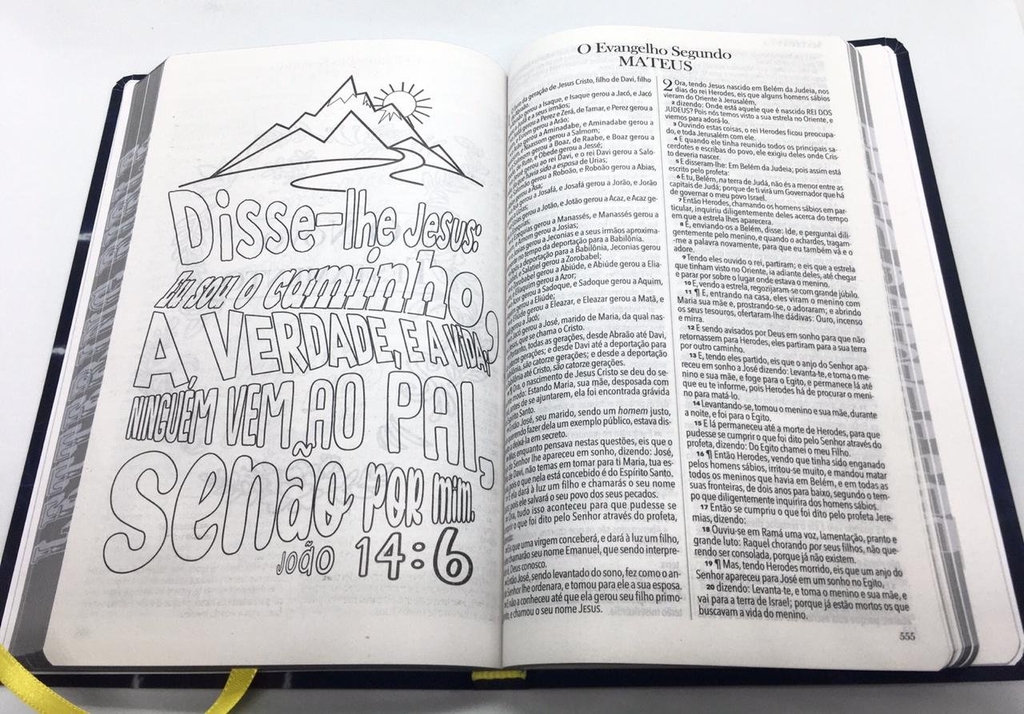 Disse-lhe Jesus:
Eu sou o caminho,
A VERDADE, E A VIDA;
NINGUÉM VEM AO PAI,
senão POR mim.
João 14:6
O Evangelho Segundo
MATEUS
da geração de Jesus Cristo, filho de Davi, filho
gerou a Isaque, e Isaque gerou a Jacó, e Jacó
e seus irmãos;
gerou a Perez e Zerá, de Tamar, e Perez gerou a
gerou a Arão;
gerou a Aminadabe, e Aminadabe gerou a
Naassom gerou a Salmom;
gerou a Boaz, de Raabe, e Boaz gerou a
de Rute, e Obede gerou a Jessé;
gerou ao rei Davi, e o rei Davi gerou a Salo-
que havia sido a esposa de Urias;
gerou a Roboão, e Roboão gerou a Abias,
a Asa;
gerou a Josafá, e Josafá gerou a Jorão, e Jorão
gerou a Jotão, e Jotão gerou a Acaz, e Acaz ge-
gerou a Manassés, e Manassés gerou a
Amom gerou a Josias;
gerou a Jeconias e a seus irmãos aproxima-
no tempo da deportação para a Babilônia.
a deportação para a Babilônia, Jeconias gerou
Salatiel gerou a Zorobabel;
gerou a Abiúde, e Abiúde gerou a Elia-
gerou a Azor;
gerou a Sadoque, e Sadoque gerou a Aquim,
gerou a Eliúde;
gerou a Eleazar, e Eleazar gerou a Matã, e
a Jacó;
gerou a José, marido de Maria, da qual nas-
que se chama o Cristo.
todas as gerações, desde Abraão até Davi,
gerações; e desde Davi até a deportação para
são catorze gerações; e desde a deportação
até Cristo, são catorze gerações.
o nascimento de Jesus Cristo se deu do se-
modo: Estando Maria, sua mãe, desposada com
antes de se ajuntarem, ela foi encontrada grávida
Espírito Santo.
José, seu marido, sendo um homem justo,
querendo fazer dela um exemplo público, estava dis-
deixá-la em secreto.
enquanto pensava nestas questões, eis que o
Senhor lhe apareceu em sonho, dizendo: José,
Davi, não temas em tomar para ti Maria, tua es-
o que nela está concebido é do Espírito Santo.
ela dará à luz um filho e chamarás o seu nome
ele salvará o seu povo dos seus pecados.
tudo isso aconteceu para que pudesse se
o que foi dito pelo Senhor através do profeta,
que uma virgem conceberá, e dará à luz um filho,
chamarão seu nome Emanuel, que sendo interpre-
Deus conosco.
José, sendo levantado do sono, fez como o an-
Senhor lhe ordenara, e tomou para ele a sua esposa.
não a conheceu até que ela gerou seu filho primo-
e chamou o seu nome Jesus.
2 Ora, tendo Jesus nascido em Belém da Judeia, nos
dias do rei Herodes, eis que alguns homens sábios
vieram do Oriente à Jerusalém,
2 dizendo: Onde está aquele que é nascido REI DOS
JUDEUS? Pois nós temos visto a sua estrela no Oriente, e
viemos para adorá-lo.
3 Ouvindo estas coisas, o rei Herodes ficou preocupa-
do, e toda Jerusalém com ele.
4 E quando ele tinha reunido todos os principais sa-
cerdotes e escribas do povo, ele exigiu deles onde Cris-
to deveria nascer.
5 E disseram-lhe: Em Belém da Judeia; pois assim está
escrito pelo profeta:
6 E tu, Belém, na terra de Judá, não és a menor entre as
capitais de Judá; porque de ti virá um Governador que há
de governar o meu povo Israel.
7 Então Herodes, chamando os homens sábios em par-
ticular, inquiriu diligentemente deles acerca do tempo
em que a estrela lhes aparecera.
8 E, enviando-os a Belém, disse: Ide, e perguntai dili-
gentemente pelo menino, e quando o achardes, tragam-
-me a palavra novamente, para que eu também vá e o
adore.
9 Tendo eles ouvido o rei, partiram; e eis que a estrela
que tinham visto no Oriente, ia adiante deles, até chegar
e parar por sobre o lugar onde estava o menino.
10 E, vendo a estrela, regozijaram-se com grande júbilo.
11 ¶ E, entrando na casa, eles viram o menino com
Maria sua mãe e, prostrando-se, o adoraram; e abrindo
os seus tesouros, ofertaram-lhe dádivas: Ouro, incenso
e mirra.
12 E sendo avisados por Deus em sonho para que não
retornassem para Herodes, eles partiram para a sua terra
por outro caminho.
13 E, tendo eles partido, eis que o anjo do Senhor apa-
receu em sonho a José dizendo: Levanta-te, e toma o me-
nino e sua mãe, e foge para o Egito, e permanece lá até
que eu te informe, pois Herodes há de procurar o meni-
no para matá-lo.
14 Levantando-se, tomou o menino e sua mãe, durante
a noite, e foi para o Egito.
15 E lá permaneceu até a morte de Herodes, para que
pudesse se cumprir o que foi dito pelo Senhor através do
profeta, dizendo: Do Egito chamei o meu Filho.
16 ¶ Então Herodes, vendo que tinha sido enganado
pelos homens sábios, irritou-se muito, e mandou matar
todos os meninos que havia em Belém, e em todas as
suas fronteiras, de dois anos para baixo, segundo o tem-
po que diligentemente inquirira dos homens sábios.
17 Então se cumpriu o que foi dito pelo profeta Jere-
mias, dizendo:
18 Ouviu-se em Ramá uma voz, lamentação, pranto e
grande luto: Raquel chorando por seus filhos, não que-
rendo ser consolada, porque já não existem.
19 ¶ Mas, tendo Herodes morrido, eis que um anjo do
Senhor apareceu para José em um sonho no Egito,
20 dizendo: Levanta-te, e toma o menino e sua mãe, e
vai para a terra de Israel; porque já estão mortos os que
buscavam a vida do menino.
555